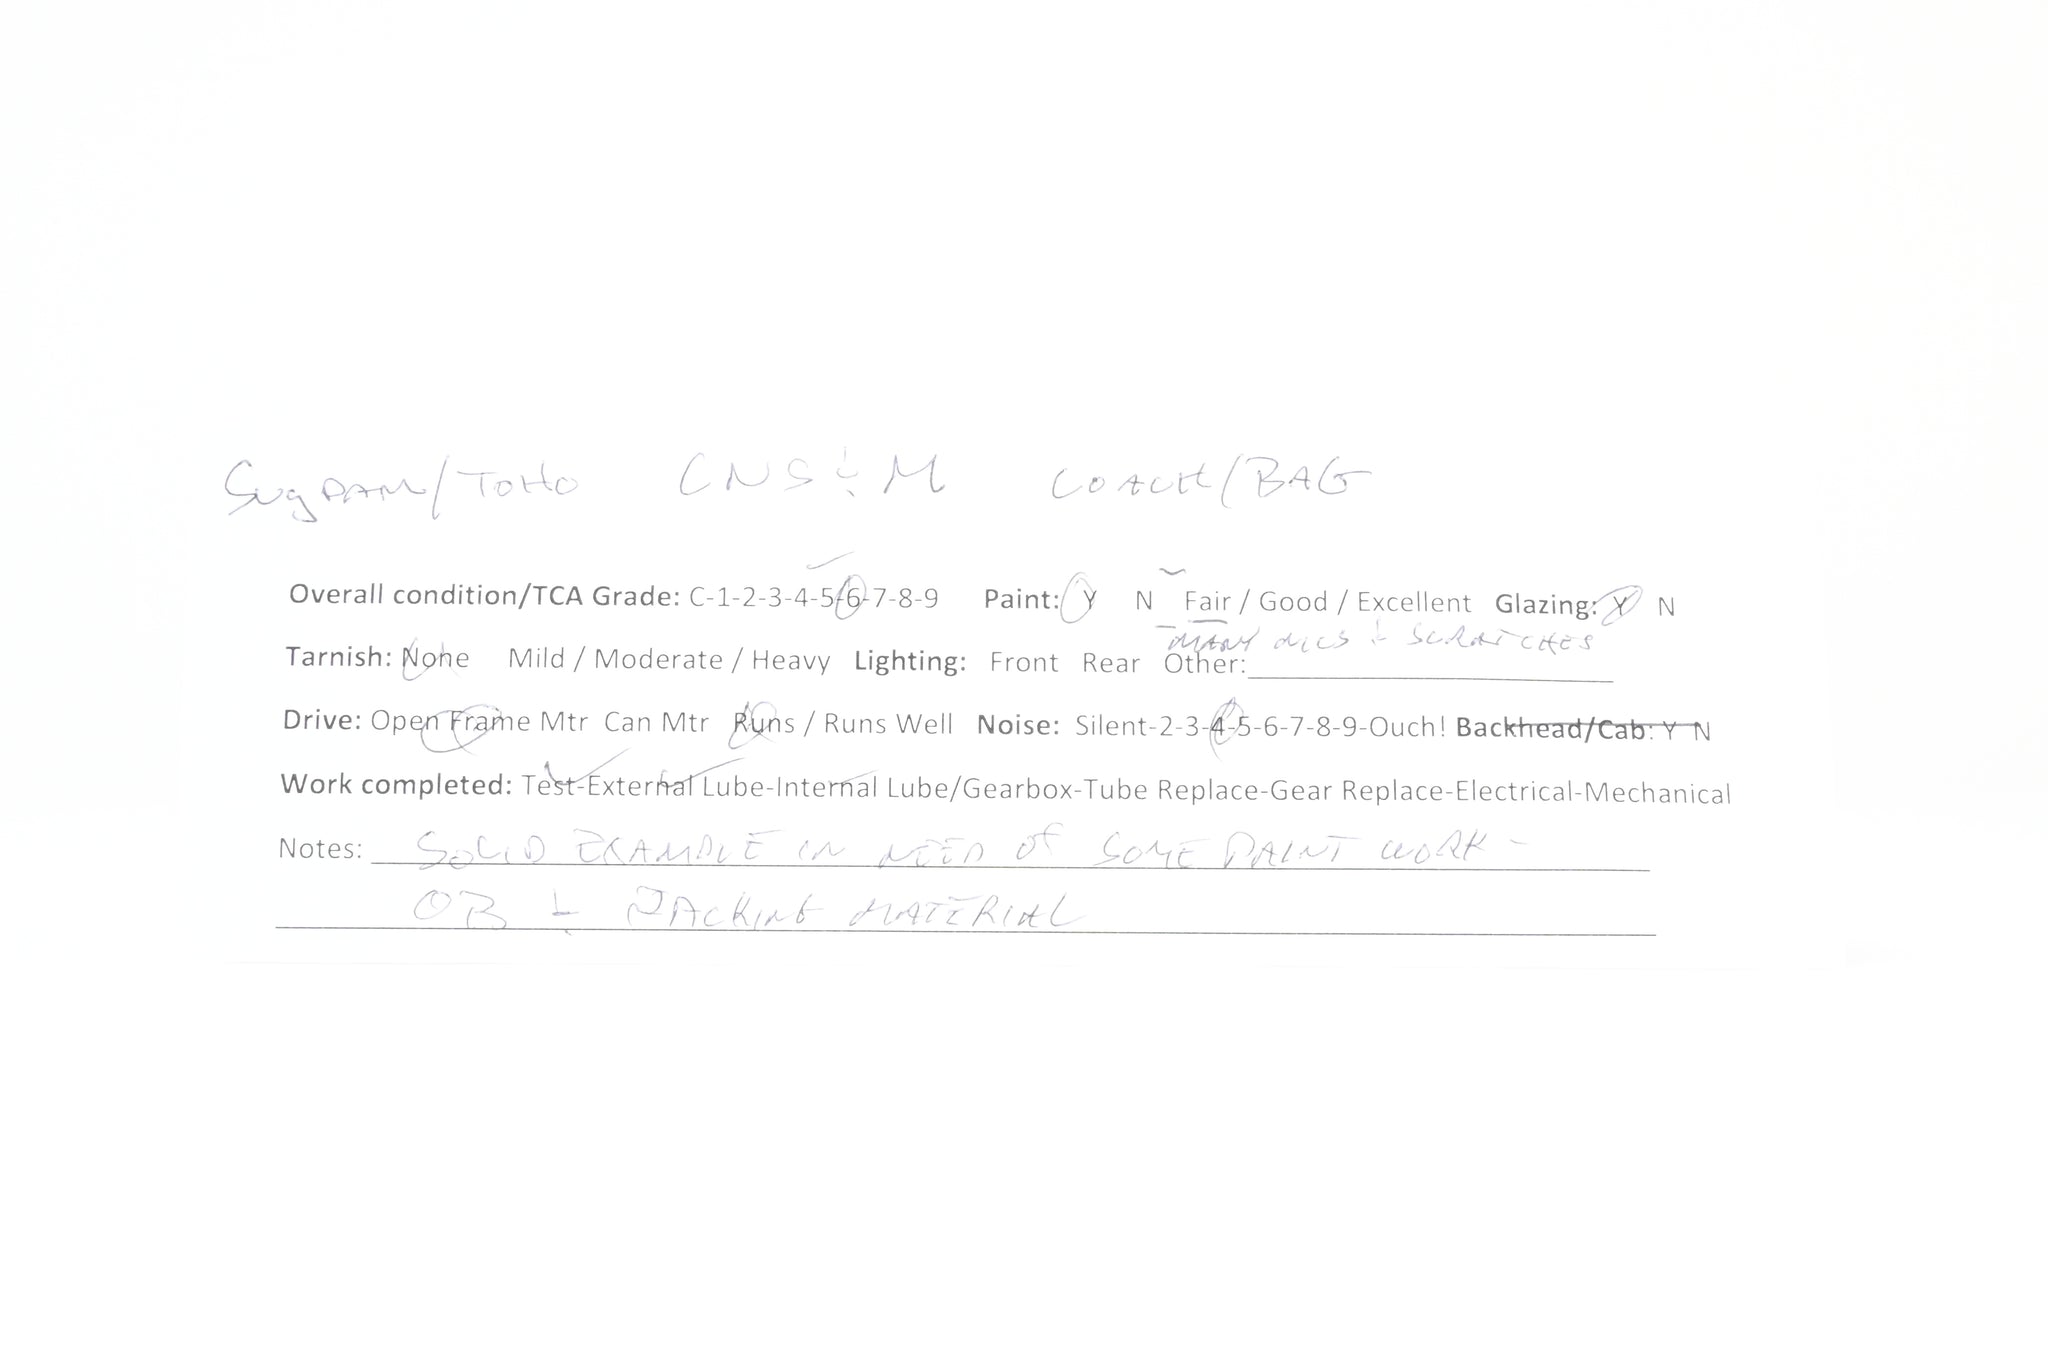 SugDAM/TOHO CNS & M COACH/BAG
Overall condition/TCA Grade: C-1-2-3-4-5-6-7-8-9 Paint: Y N Fair / Good / Excellent Glazing: Y N
MANY NICS & SCRATCHES
Tarnish: None Mild / Moderate / Heavy Lighting: Front Rear Other:
Drive: Open Frame Mtr Can Mtr Runs / Runs Well Noise: Silent-2-3-4-5-6-7-8-9-Ouch! Backhead/Cab: Y N
Work completed: Test-External Lube-Internal Lube/Gearbox-Tube Replace-Gear Replace-Electrical-Mechanical
Notes: SOLID EXAMPLE IN NEED OF SOME PAINT WORK -
OB & PACKING MATERIAL